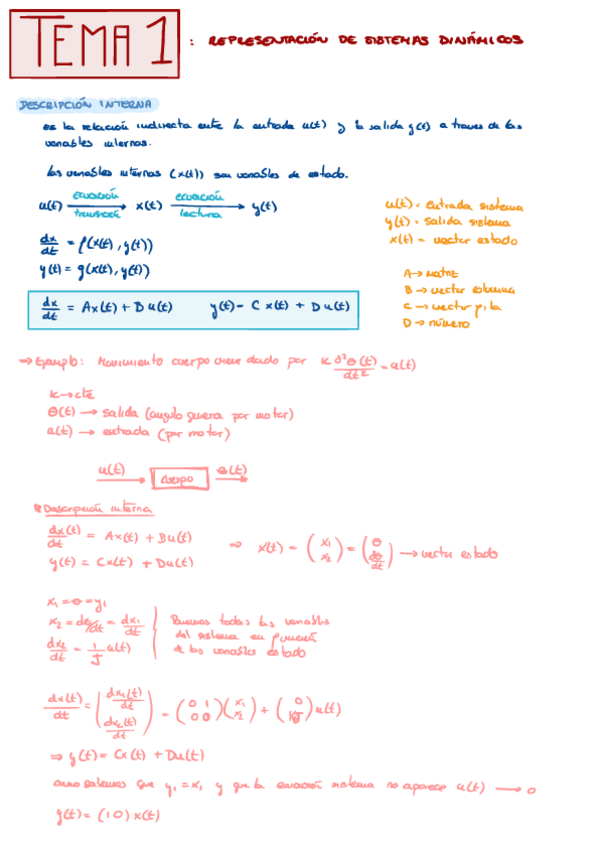 TEMA 1 : REPRESENTACIÓN DE SISTEMAS DINÁMICOS
DESCRIPCIÓN INTERNA
es la relación indirecta entre la entrada u(t) y la salida y(t) a traves de las
variables internas.
las variables internas (x(t)) son variables de estado.
u(t) ecuación transición → x(t) ecuación lectura → y(t)
u(t) = entrada sistema
y(t) = salida sistema
x(t) = vector estado
dx/dt = f(x(t), y(t))
y(t) = g(x(t), y(t))
A → matriz
B → vector columna
C → vector fila
D → número
dx/dt = Ax(t) + B u(t) y(t) = C x(t) + D u(t)
⇒ Ejemplo: Movimiento cuerpo viene dado por K ∂²θ(t)/dt² = u(t)
K → cte
θ(t) → salida (angulo genera por motor)
u(t) → entrada (par motor)
u(t) → cuerpo θ(t) →
Descripción interna
dx(t)/dt = Ax(t) + Bu(t)
y(t) = Cx(t) + Du(t)
⇒ x(t) = (x₁ x₂) = (θ dθ/dt) → vector estado
x₁ = θ = y₁
x₂ = dθ/dt = dx₁/dt
dx₂/dt = 1/J u(t)
Ponemos todas las variables
del sistema en función
de las variables estado
dx(t)/dt = (dx₁(t)/dt dx₂(t)/dt) = (0 1 0 0)(x₁ x₂) + (0 1/J) u(t)
⇒ y(t) = Cx(t) + Du(t)
como sabemos que y₁ = x₁ y que la ecuación sistema no aparece u(t) → 0
y(t) = (1 0) x(t)